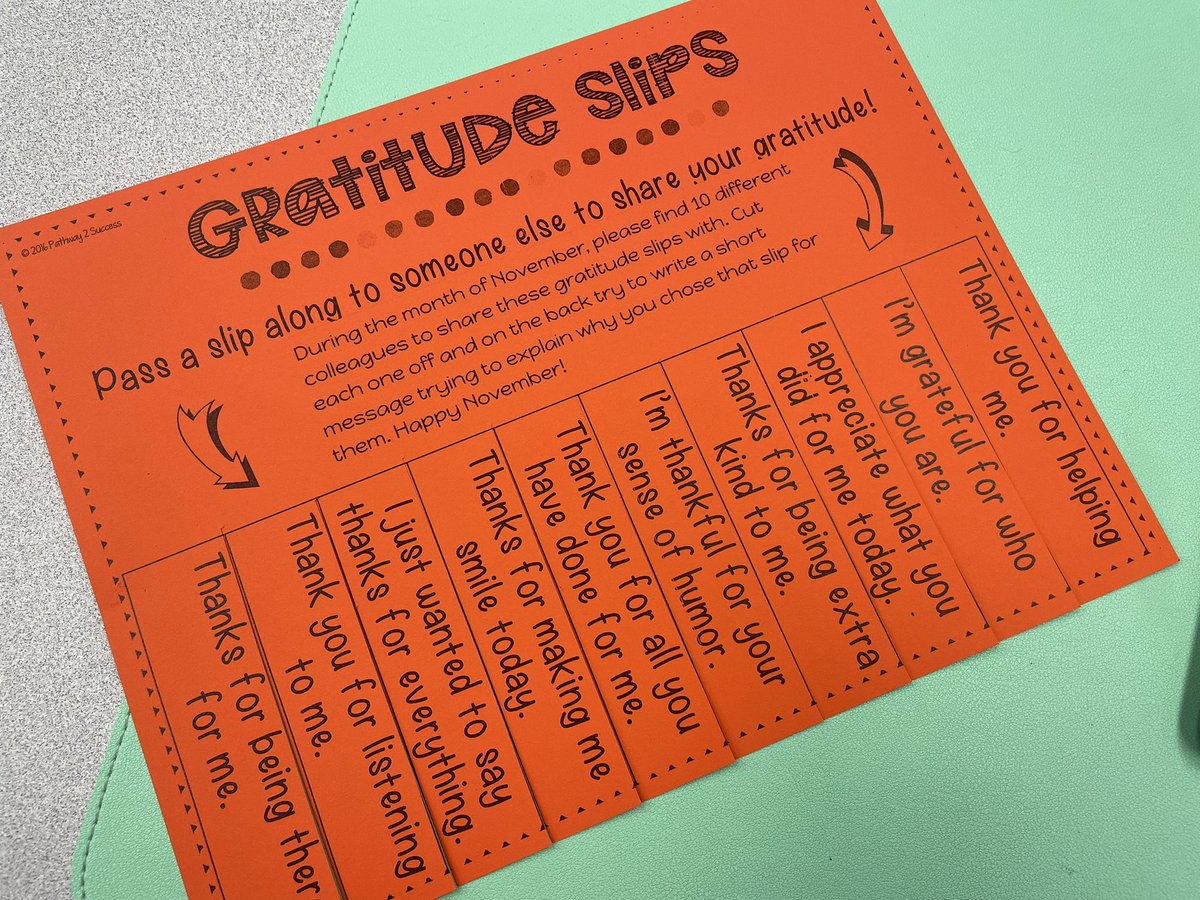 © 2016 Pathway 2 Success
Gratitude Slips
Pass a slip along to someone else to share your gratitude!
During the month of November, please find 10 different
colleagues to share these gratitude slips with. Cut
each one off and on the back try to write a short
message trying to explain why you chose that slip for
them. Happy November!
Thanks for being ther
for me.
Thank you for listening
to me.
I just wanted to say
thanks for everything.
Thanks for making me
smile today.
Thank you for all you
have done for me.
I'm thankful for your
sense of humor.
Thanks for being extra
kind to me.
I appreciate what you
did for me today.
I'm grateful for who
you are.
Thank you for helping
me.